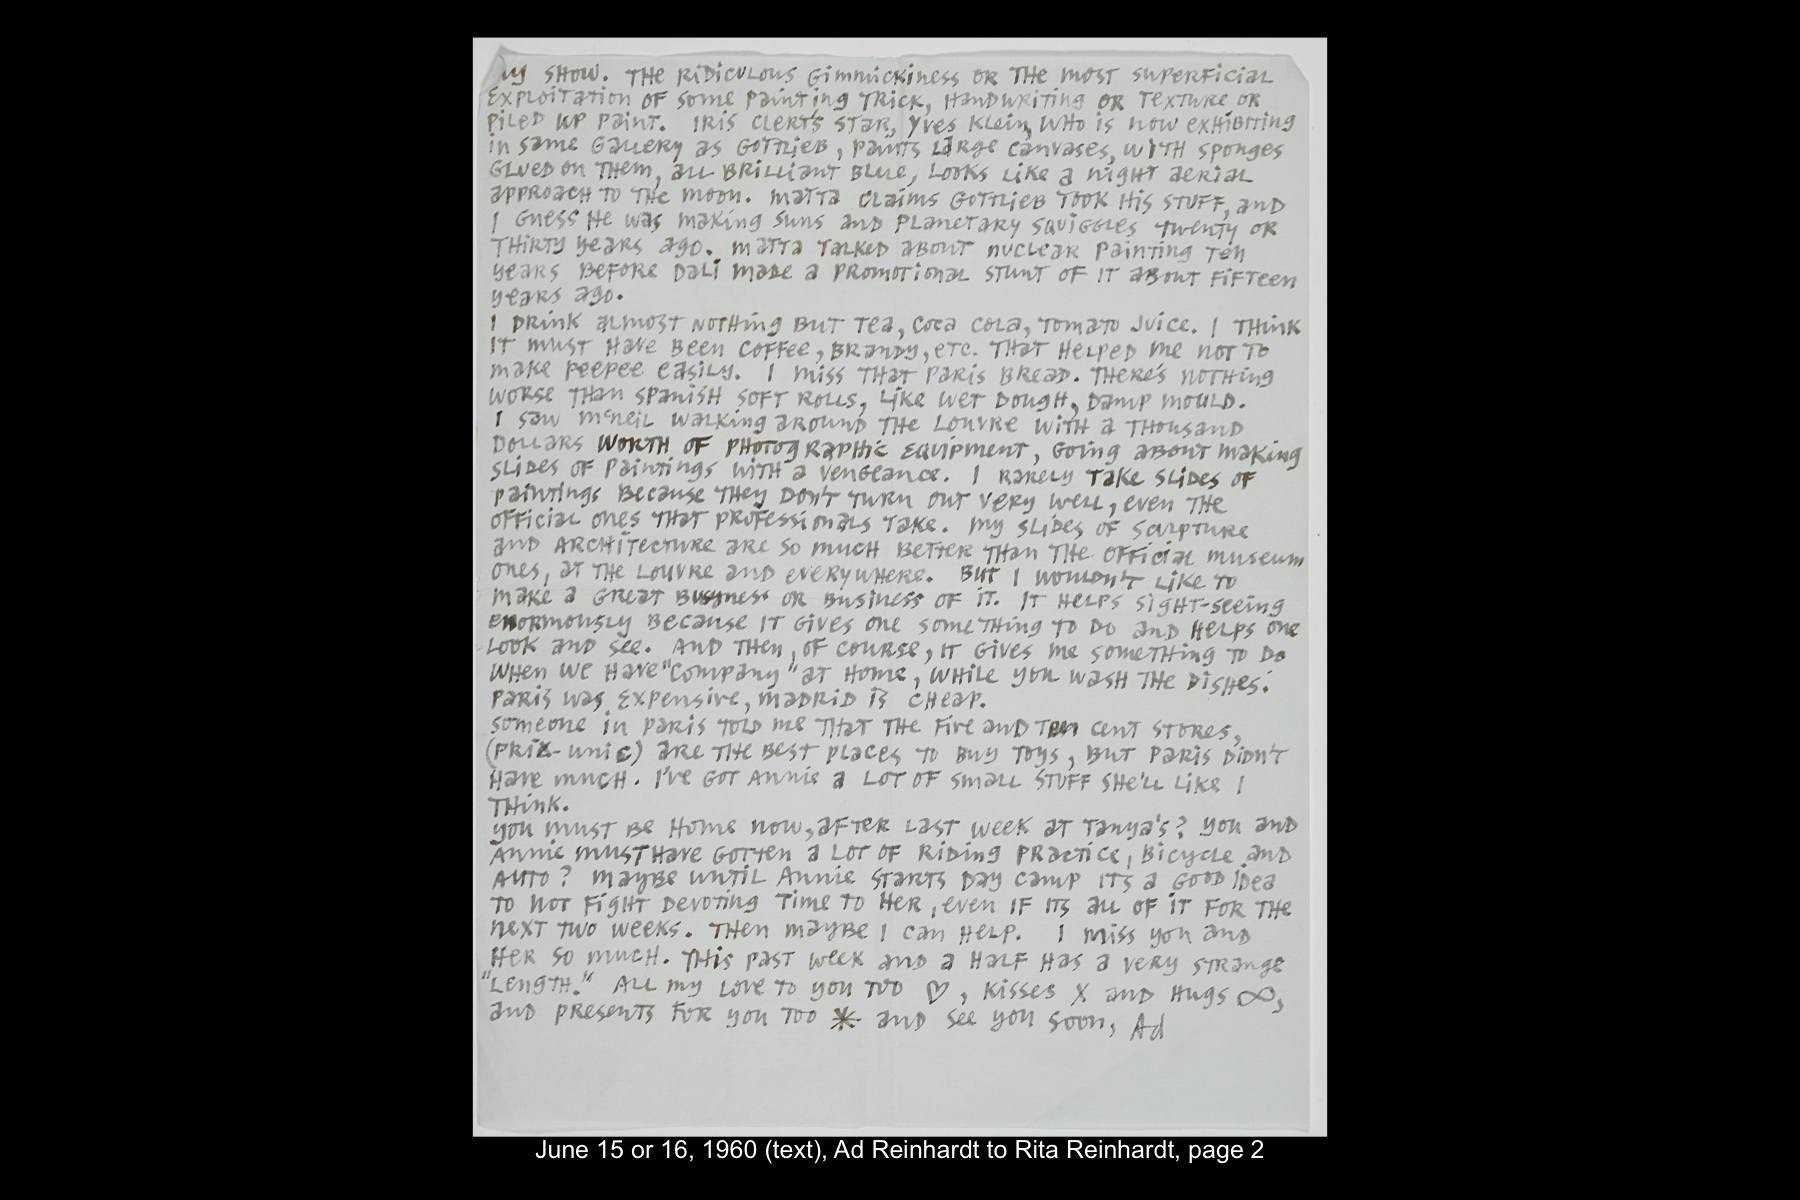 my SHOW. THE RiDiCULOUS GimmickiNess OR THE most SUPERFiCiAL
EXPLOiTATion OF some PAinting TRiCK, HANDWRiTiNG OR TEXTURE OR
PiLED UP PAiNT. IRiS CLERT'S STAR, YVES KLEin, WHO is now EXHiBiTiNG
in same GALLERY as GOTTLiEB, PAiNTS LARGE canvases, WiTH SPONGES
GLUED ON THEM, ALL BRiLLiANT BLUE, LOOKS LiKE a niGHT AERiAL
APPROACH TO THE MOON. MATTA CLAiMS GOTTLiEB TOOK HiS STUFF, AND
I GUESS HE WAS MAKiNG SUNS AND PLANETARY SQUiGGLES TWENTY OR
THiRTY YEARS AGO. MATTA TALKED ABOUT NUCLEAR PAiNTiNG TEN
YEARS BEFORE DALi MADE a PROMOTiONAL STUNT OF iT ABOUT FiFTEEN
YEARS AGO.
I DRiNK ALMOST NOTHiNG BUT TEA, COCA COLA, TOMATO JUiCE. I THiNK
IT MUST HAVE BEEN COFFEE, BRANDY, ETC. THAT HELPED ME NOT TO
MAKE PEEPEE EASiLY. I MiSS THAT PARiS BREAD. THERE'S NOTHiNG
WORSE THAN SPANiSH SOFT ROLLS, LiKE WET DOUGH, DAMP MOULD.
I SAW McNEiL WALKiNG AROUND THE LOUVRE WiTH a THOUSAND
DOLLARS WORTH OF PHOTOGRAPHiC EQUiPMENT, GOiNG ABOUT MAKiNG
SLiDES OF PAiNTiNGS WiTH a VENGEANCE. I RARELY TAKE SLiDES OF
PAiNTiNGS BECAUSE THEY DON'T TURN OUT VERY WELL, EVEN THE
OFFiCiAL ONES THAT PROFESSiONALS TAKE. MY SLiDES OF SCULPTURE
AND ARCHiTECTURE ARE SO MUCH BETTER THAN THE OFFiCiAL MUSEUM
ONES, AT THE LOUVRE AND EVERYWHERE. BUT I WOULDN'T LiKE TO
MAKE a GREAT BUSYNESS OR BUSiNESS OF iT. IT HELPS SiGHT-SEEiNG
ENORMOUSLY BECAUSE IT GiVES ONE SOMETHiNG TO DO AND HELPS ONE
LOOK AND SEE. AND THEN, OF COURSE, IT GiVES ME SOMETHiNG TO DO
WHEN WE HAVE "COMPANY" AT HOME, WHiLE YOU WASH THE DiSHES.
PARiS WAS EXPENSiVE, MADRiD iS CHEAP.
SOMEONE iN PARiS TOLD ME THAT THE FiVE AND TEN CENT STORES,
(PRiX-UNiC) ARE THE BEST PLACES TO BUY TOYS, BUT PARiS DiDN'T
HAVE MUCH. I'VE GOT ANNiE a LOT OF SMALL STUFF SHE'LL LiKE I
THiNK.
YOU MUST BE HOME NOW, AFTER LAST WEEK AT TANYA'S? YOU AND
ANNiE MUST HAVE GOTTEN a LOT OF RiDiNG PRACTiCE, BiCYCLE AND
AUTO? MAYBE UNTiL ANNiE STARTS DAY CAMP ITS a GOOD IDEA
TO NOT FiGHT DEVOTiNG TiME TO HER, EVEN IF ITS ALL OF iT FOR THE
NEXT TWO WEEKS. THEN MAYBE I CAN HELP. I MiSS YOU AND
HER SO MUCH. THiS PAST WEEK AND a HALF HAS a VERY STRANGE
"LENGTH." ALL MY LOVE TO YOU TOO ♡, KiSSES X AND HUGS ∞,
AND PRESENTS FOR YOU TOO * AND SEE YOU SOON, Ad
June 15 or 16, 1960 (text), Ad Reinhardt to Rita Reinhardt, page 2